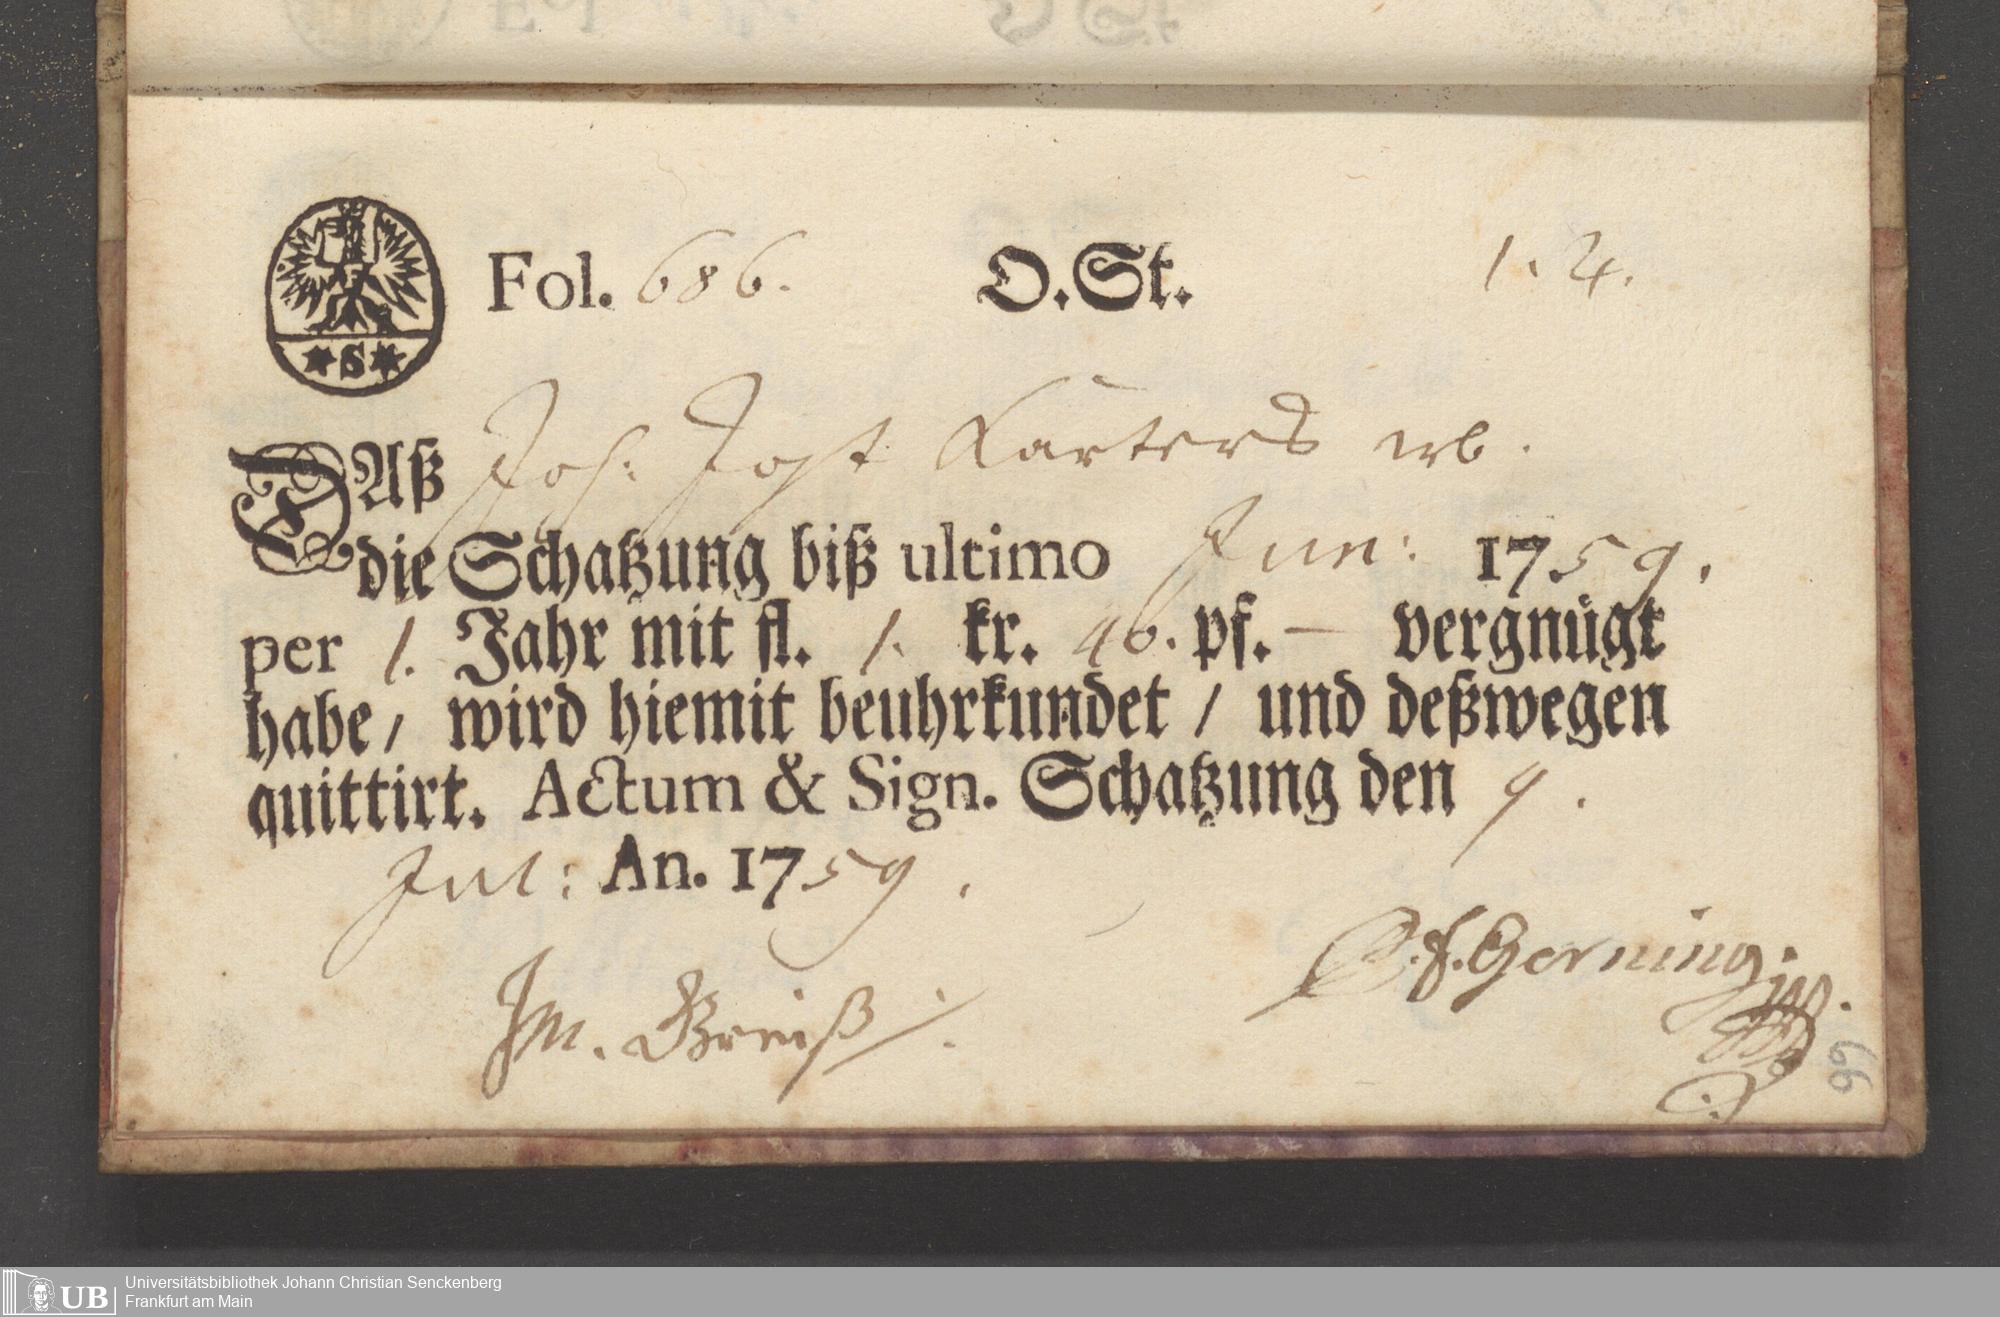 Fol. 686. O.St. 1. 4.
*S*
DAß Joh: Jost Karters wb.
die Schatzung biß ultimo Jun: 1759.
per 1. Jahr mit fl. 1. kr. 46. pf. — vergnügt
habe, wird hiemit beuhrkundet / und deßwegen
quittirt. Actum & Sign. Schatzung den 9.
Jul: An. 1759.
C. f. Gerning.
66
UB Universitätsbibliothek Johann Christian Senckenberg
Frankfurt am Main